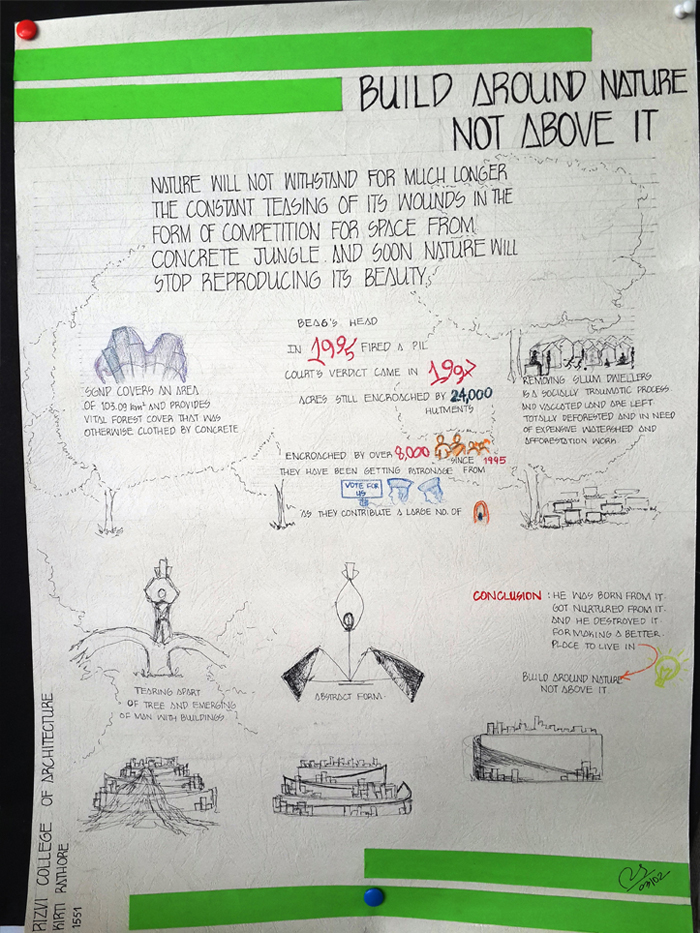 BUILD AROUND NATURE
NOT ABOVE IT
NATURE WILL NOT WITHSTAND FOR MUCH LONGER
THE CONSTANT TEASING OF ITS WOUNDS IN THE
FORM OF COMPETITION FOR SPACE FROM
CONCRETE JUNGLE AND SOON NATURE WILL
STOP REPRODUCING ITS BEAUTY.
BEAG'S HEAD
IN 1995 FIRED A PIL
COURT'S VERDICT CAME IN 1997
ACRES STILL ENCROACHED BY 24,000
HUTMENTS
SGNP COVERS AN AREA
OF 103.09 km² AND PROVIDES
VITAL FOREST COVER THAT WAS
OTHERWISE CLOTHED BY CONCRETE
REMOVING SLUM DWELLERS
IS A SOCIALLY TRAUMATIC PROCESS
AND VACCATED LAND ARE LEFT
TOTALLY DEFORESTED AND IN NEED
OF EXPENSIVE WATERSHED AND
AFFORESTATION WORK.
ENCROACHED BY OVER 8,000
SINCE 1995
THEY HAVE BEEN GETTING PATRONAGE FROM
VOTE FOR
US
AS THEY CONTRIBUTE A LARGE NO. OF
TEARING APART
OF TREE AND EMERGING
OF MAN WITH BUILDINGS
ABSTRACT FORM.
CONCLUSION : HE WAS BORN FROM IT.
GOT NURTURED FROM IT.
AND HE DESTROYED IT.
FOR MAKING A BETTER
PLACE TO LIVE IN
BUILD AROUND NATURE
NOT ABOVE IT.
RIZVI COLLEGE OF ARCHITECTURE
KIRTI RATHORE
1551